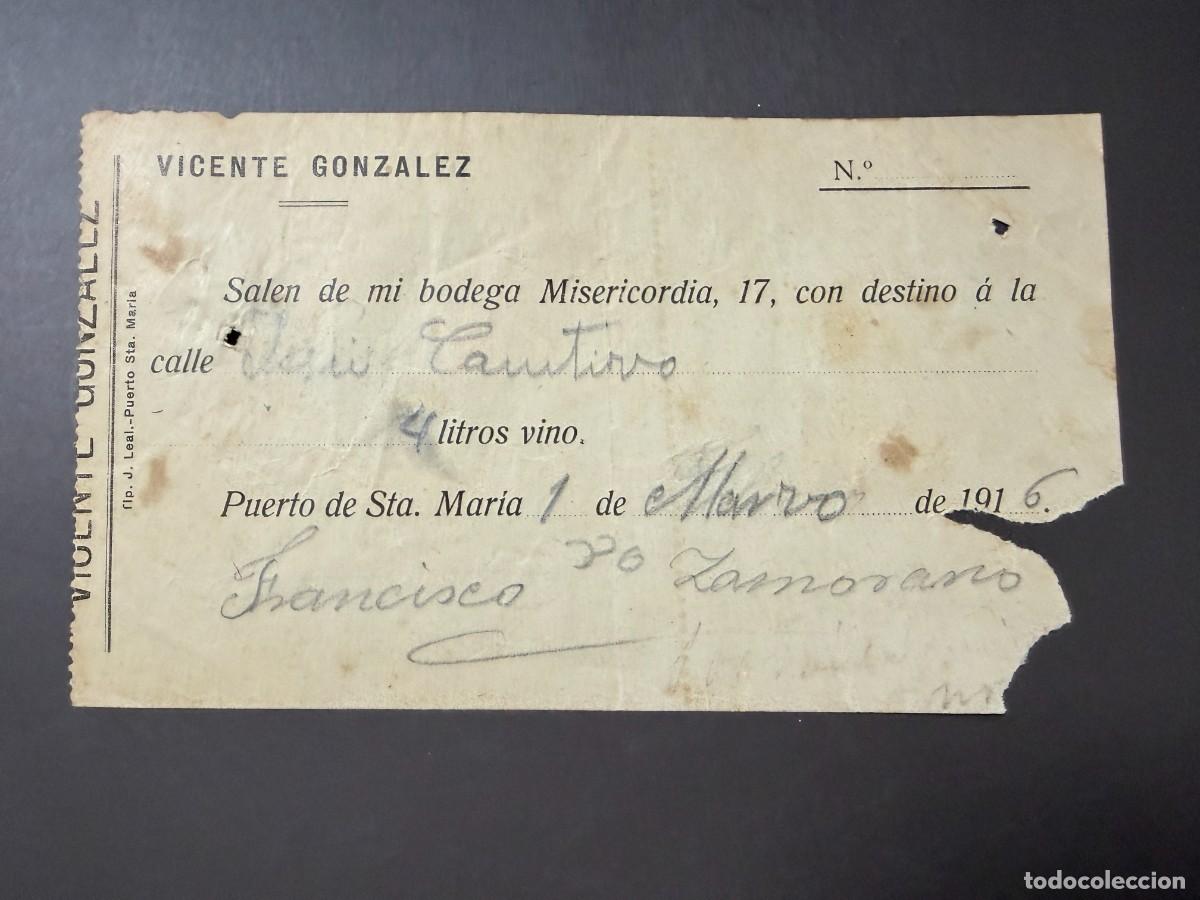 VICENTE GONZALEZ
N.º
Salen de mi bodega Misericordia, 17, con destino á la
calle Cautivo
4 litros vino.
Puerto de Sta. María 1 de Marzo de 1916.
Francisco Zamorano
VICENTE GONZALEZ
Tip. J. Leal.-Puerto Sta. Maria
todocoleccion